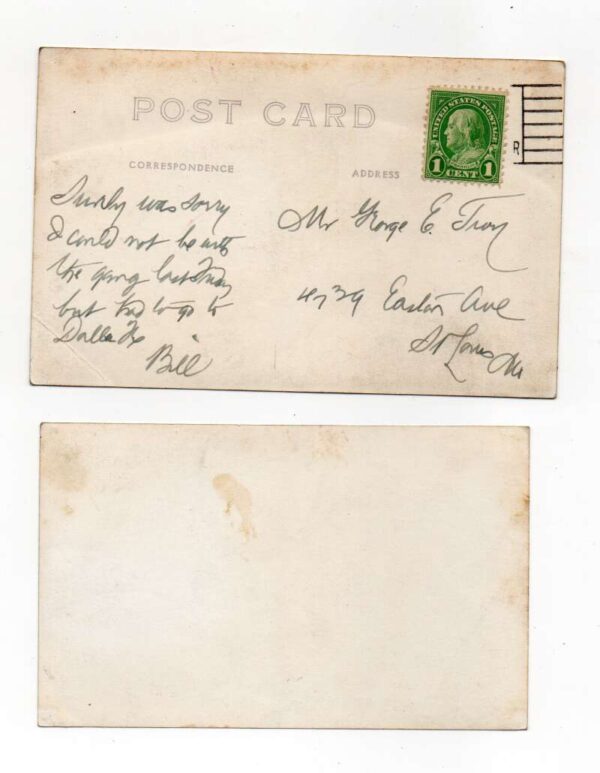 POST CARD
CORRESPONDENCE
ADDRESS
UNITED STATES POSTAGE
FRANKLIN
1 CENT 1
R
Surely was sorry
I could not be with
the gang last
but had to go to
Dallas
Bill
Mr George E. Troy
4739 Easton Ave
St Louis Mo